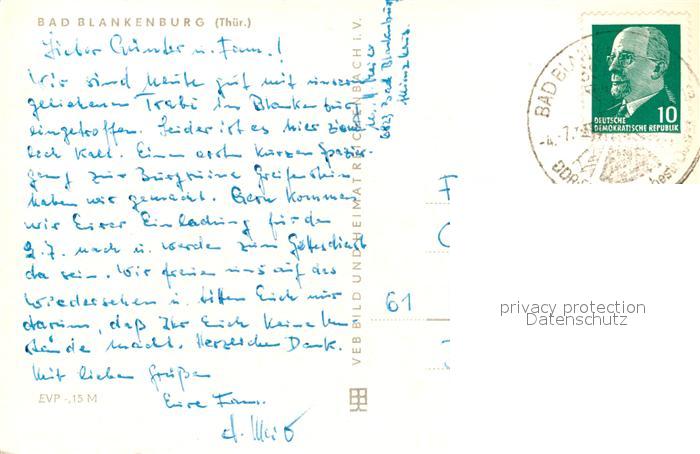 BAD BLANKENBURG (Thür.)
Lieber Günder u. Fam.!
Wir sind heute gut mit unserem
geliehenen Trabi in Blankenburg
eingetroffen. Leider ist es hier ziem-
lich kalt. Einen ersten kurzen Spazier-
gang zur Burgruine Greifenstein
haben wir gemacht. Gern kommen
wir Eurer Einladung für den
9.7. nach u. werden zum Gottesdienst
da sein. Wir freuen uns auf das
Wiedersehen u. bitten Euch nur
darum, daß Ihr Euch keine Um-
stände macht. Herzlichen Dank.
Mit lieben Grüßen
Eure Fam.
EVP -,15 M
VEB BILD UND HEIMAT REICHENBACH i. V.
6823 Bad Blankenburg
61
BAD BLAN
-4.7.
DDR
10
DEUTSCHE
DEMOKRATISCHE REPUBLIK
privacy protection
Datenschutz